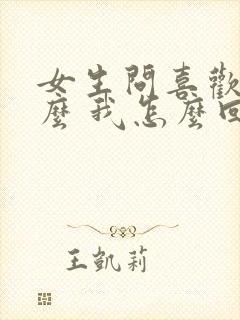 女生問喜歡
麼我怎麼回
王凱莉